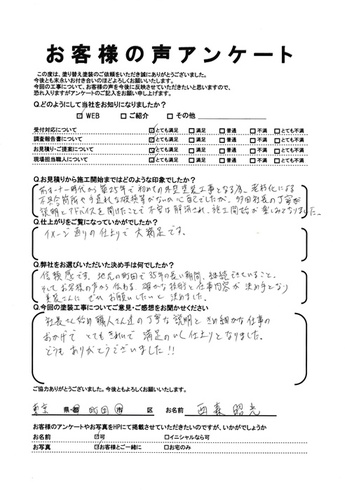 お客様の声アンケート
この度は、塗り替え塗装のご依頼をいただき誠にありがとうございました。
今後とも末永いお付き合いのほどよろしくお願いいたします。
今回の工事について、お客様の声を今後に反映させていただきたいと思いますので、
恐れ入りますがアンケートのご記入をお願い申し上げます。
Q.どのようにして当社をお知りになりましたか?
WEB ご紹介 その他
受付対応について とても満足 満足 普通 不満 とても不満
調査報告書について とても満足 満足 普通 不満 とても不満
お見積り・ご提案について とても満足 満足 普通 不満 とても不満
現場担当職人について とても満足 満足 普通 不満 とても不満
Q.お見積りから施工開始まではどのような印象でしたか?
初めての外壁塗装工事となる為、
説明とアドバイスを聞けたことで不安は解消され、施工開始が楽しみとなりました。
Q.仕上がりをご覧になっていかがでしたか?
イメージ通りの仕上りで大満足です。
Q.弊社をお選びいただいた決め手は何でしたか?
信頼感です。地元の町田で35年の長い期間、継続されていること。
そしてお客様の声から伝わる、確かな技術と仕事内容が決め手となり
ぜひお願いしたいと決めました。
Q.今回の塗装工事についてご意見・ご感想をお聞かせください
社長さん始め職人さん達の丁寧な説明ときめ細かな仕事の
おかげでとてもきれいで満足のいく仕上りとなりました。
どうもありがとうございました!!
ご協力ありがとうございました。今後ともよろしくお願いいたします。
東京 県・都 町田 市 区 お名前 西森 昭
お客様のアンケートやお写真をHPにて掲載させていただきたいのですが、いかがでしょうか
お名前 可 イニシャルなら可
お写真 お客様とご一緒に お宅のみ